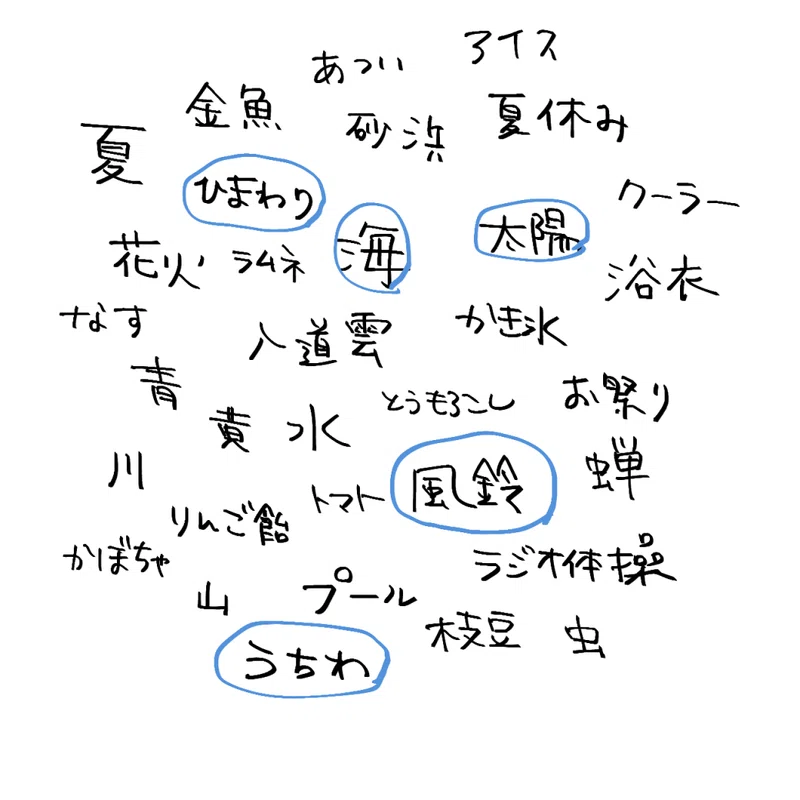 あつい
アイス
金魚
砂浜
夏休み
夏
ひまわり
海
太陽
クーラー
花火
ラムネ
浴衣
なす
入道雲
かき氷
青
黄
水
とうもろこし
お祭り
川
トマト
風鈴
蝉
りんご飴
かぼちゃ
ラジオ体操
山
プール
枝豆
虫
うちわ